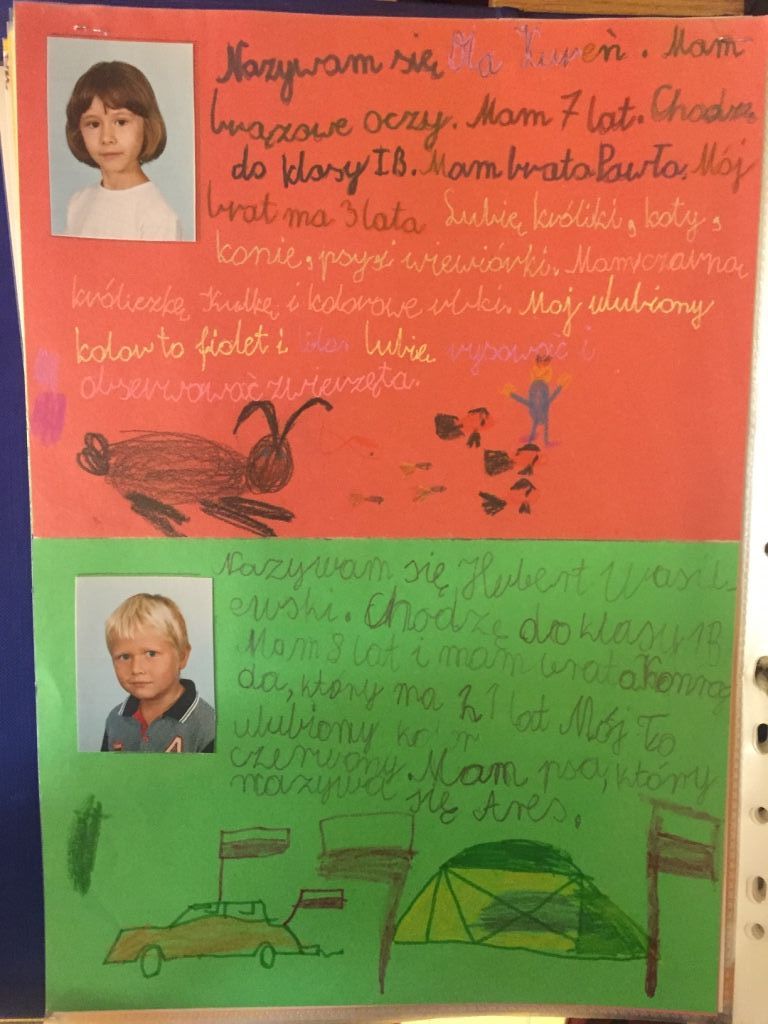 Nazywam się Ola Kureń. Mam
brązowe oczy. Mam 7 lat. Chodzę
do klasy IB. Mam brata Pawła. Mój
brat ma 3 lata Lubię króliki, koty,
konie, psy i wiewiórki. Mam czarną
króliczkę Kulkę i kolorowe rybki. Mój ulubiony
kolor to fiolet i lubię rysować i
obserwować zwierzęta.
Nazywam się Hubert Wasil-
ewski. Chodzę do klasy 1B
Mam 8 lat i mam brata Konra
da, który ma 21 lat Mój
ulubiony kolor to
czerwony. Mam psa, który
nazywa się Ares.